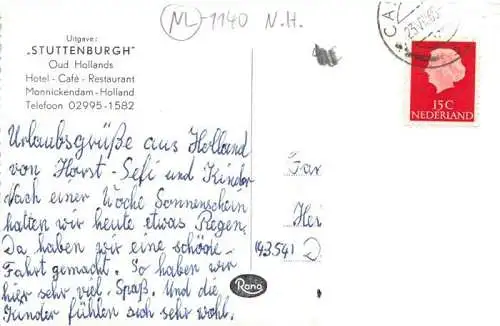 NL-1140 N.H.
Uitgave:
„STUTTENBURGH"
Oud Hollands
Hotel - Café - Restaurant
Monnickendam - Holland
Telefoon 02995-1582
15C
NEDERLAND
Urlaubsgrüße aus Holland
von Horst - Sefi und Kinder
Nach einer Woche Sonnenschein
hatten wir heute etwas Regen.
Da haben wir eine schöne
Fahrt gemacht. So haben wir
hier sehr viel Spaß. Und die
Kinder fühlen sich sehr wohl.
Hei
143.541
D